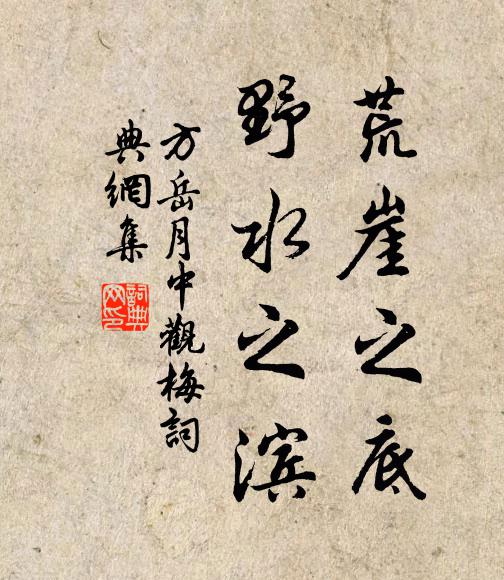 荒崖之底
野水之滨
方岳月中觀梅詞
典網集
詞典
网印